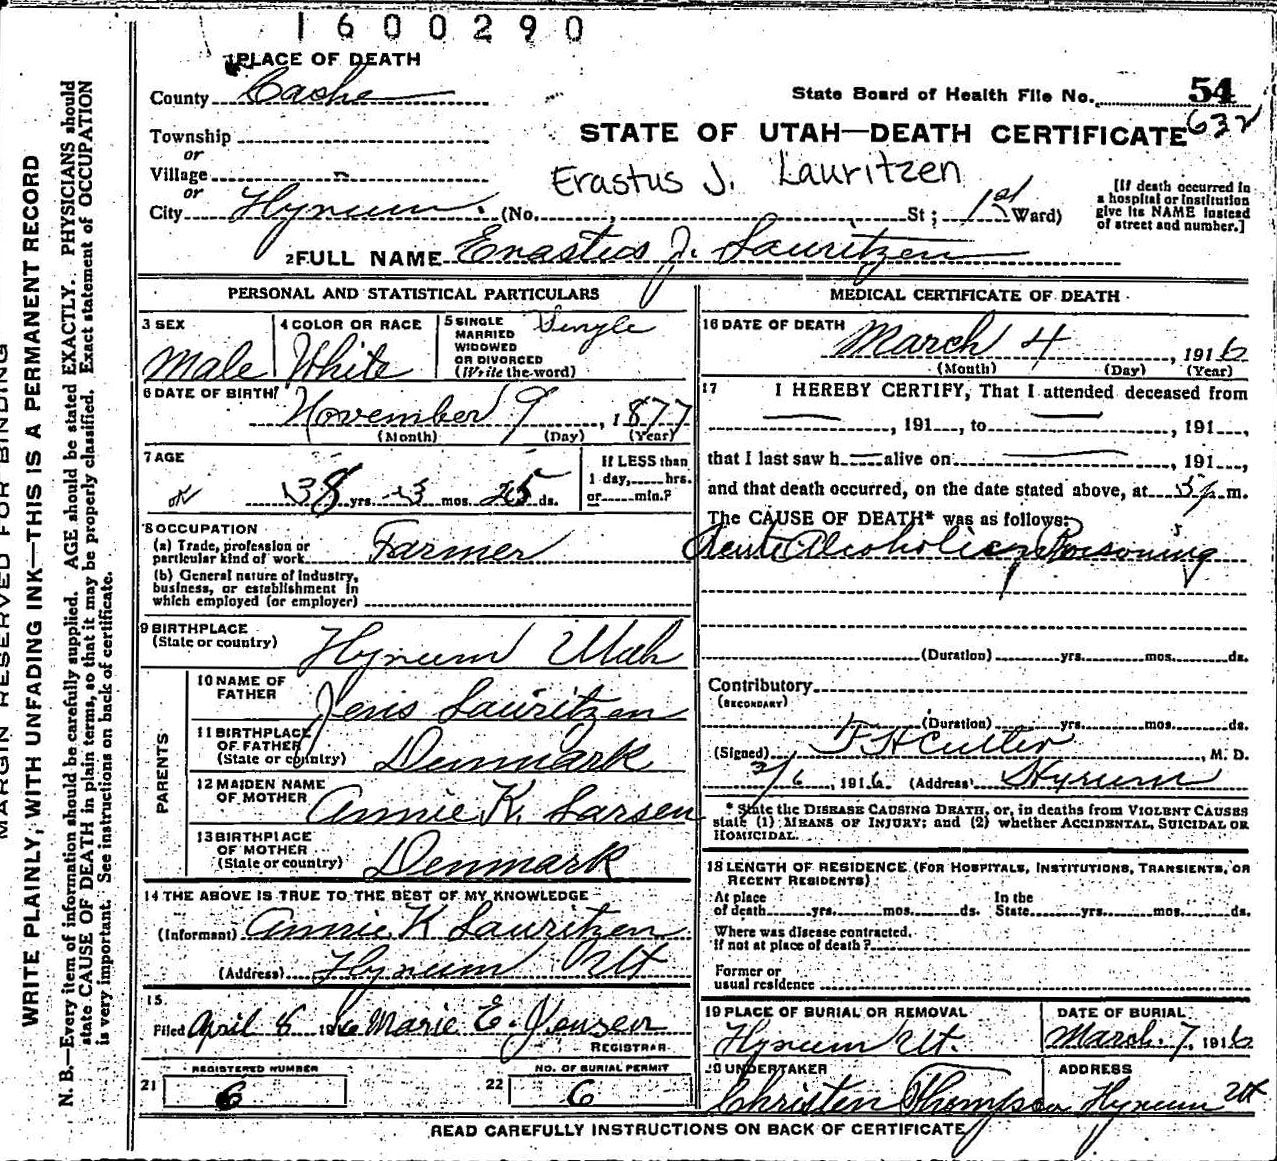 1600290
1 PLACE OF DEATH
County Cache
State Board of Health File No. 54
632
Township
or
Village
or
City Hyrum. (No. , St; 1st Ward)
STATE OF UTAH—DEATH CERTIFICATE
Erastus J. Lauritzen
[If death occurred in
a hospital or institution
give its NAME instead
of street and number.]
2 FULL NAME Erastus J. Lauritzen
PERSONAL AND STATISTICAL PARTICULARS
3 SEX
Male
4 COLOR OR RACE
White
5 SINGLE
MARRIED
WIDOWED
OR DIVORCED
(Write the word)
Single
6 DATE OF BIRTH
November 9, 1877
(Month) (Day) (Year)
7 AGE
38 yrs. 3 mos. 25 ds.
If LESS than
1 day, hrs.
or min.?
8 OCCUPATION
(a) Trade, profession or
particular kind of work Farmer
(b) General nature of industry,
business, or establishment in
which employed (or employer)
9 BIRTHPLACE
(State or country) Hyrum Utah
PARENTS
10 NAME OF
FATHER Jens Lauritzen
11 BIRTHPLACE
OF FATHER
(State or country) Denmark
12 MAIDEN NAME
OF MOTHER Annie K. Larsen
13 BIRTHPLACE
OF MOTHER
(State or country) Denmark
14 THE ABOVE IS TRUE TO THE BEST OF MY KNOWLEDGE
(Informant) Annie K Lauritzen
(Address) Hyrum Ut
15
Filed April 6 1916 Marie E. Jensen
REGISTRAR
21 REGISTERED NUMBER
6
22 NO. OF BURIAL PERMIT
6
MEDICAL CERTIFICATE OF DEATH
16 DATE OF DEATH
March 4, 1916
(Month) (Day) (Year)
17 I HEREBY CERTIFY, That I attended deceased from
, 191 , to , 191 ,
that I last saw h alive on , 191 ,
and that death occurred, on the date stated above, at 5 p. m.
The CAUSE OF DEATH* was as follows:
Acute Alcoholic Poisoning
(Duration) yrs. mos. ds.
Contributory
(SECONDARY)
(Duration) yrs. mos. ds.
(Signed) , M. D.
3/6, 1916. (Address) Hyrum
* State the DISEASE CAUSING DEATH, or, in deaths from VIOLENT CAUSES
state (1) MEANS OF INJURY; and (2) whether ACCIDENTAL, SUICIDAL OR
HOMICIDAL.
18 LENGTH OF RESIDENCE (FOR HOSPITALS, INSTITUTIONS, TRANSIENTS, OR
RECENT RESIDENTS)
At place In the
of death yrs. mos. ds. State yrs. mos. ds.
Where was disease contracted.
If not at place of death?
Former or
usual residence
19 PLACE OF BURIAL OR REMOVAL
Hyrum Ut.
DATE OF BURIAL
March 7, 1916
20 UNDERTAKER
Christen Thompson
ADDRESS
Hyrum Ut
READ CAREFULLY INSTRUCTIONS ON BACK OF CERTIFICATE
MARGIN RESERVED FOR BINDING
WRITE PLAINLY, WITH UNFADING INK—THIS IS A PERMANENT RECORD
N. B.—Every item of information should be carefully supplied. AGE should be stated EXACTLY. PHYSICIANS should
state CAUSE OF DEATH in plain terms, so that it may be properly classified. Exact statement of OCCUPATION
is very important. See instructions on back of certificate.